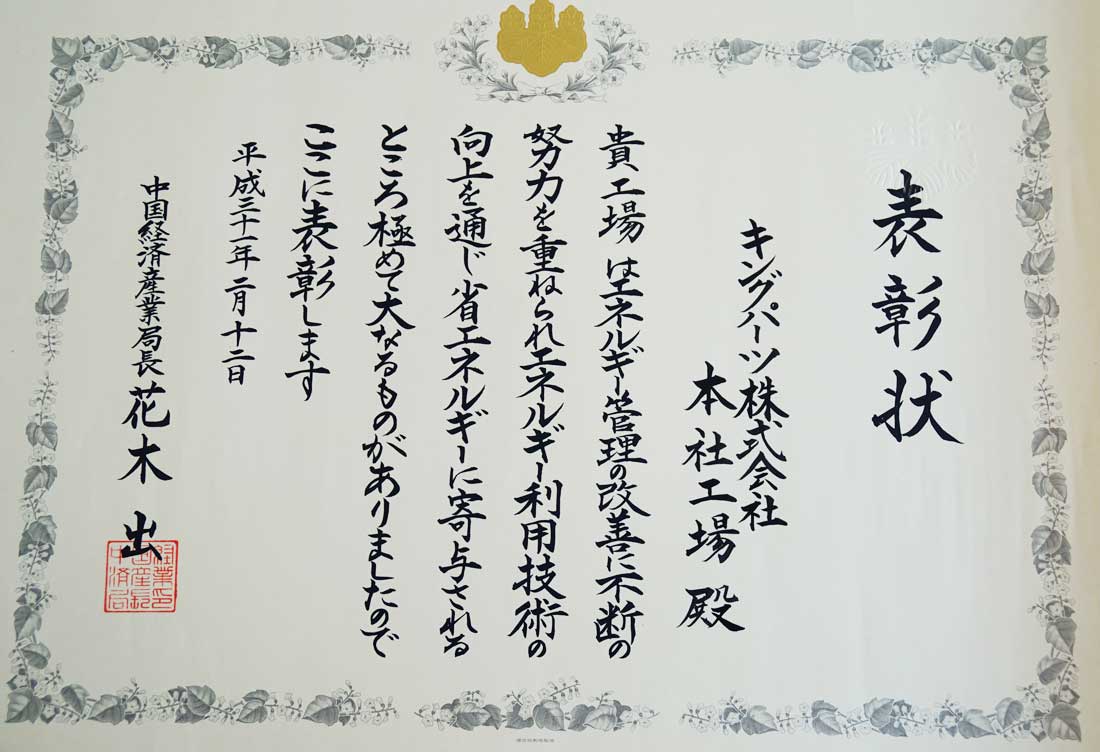 表彰状
キングパーツ株式会社
本社工場 殿
貴工場はエネルギー管理の改善に不断の
努力を重ねられエネルギー利用技術の
向上を通じ省エネルギーに寄与される
ところ極めて大なるものがありましたので
ここに表彰します
平成三十一年二月十二日
中国経済産業局長 花木 出